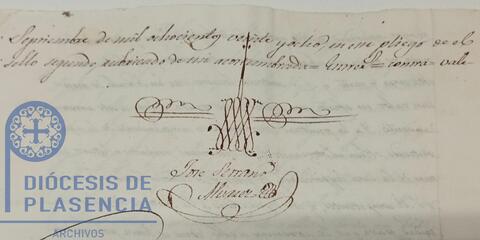 Septiembre de mil ochocientos veinte y ocho en este pliego de el
sello segundo, rubricado de mi acostumbrada = contra vale
Jose Serrano
DIÓCESIS DE
PLASENCIA
ARCHIVOS